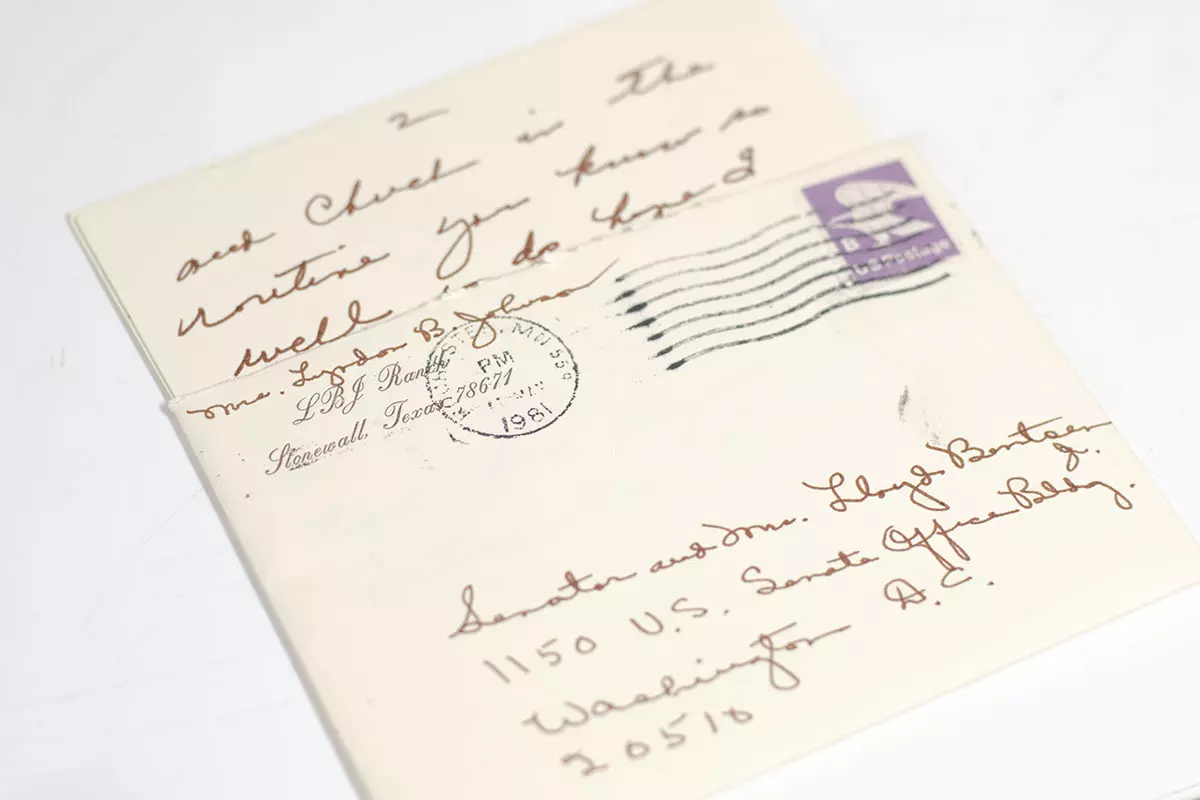 2
and Church in the
routine you know so
well so do hope I
Mrs. Lyndon B. Johnson
LBJ Ranch
Stonewall, Texas 78671
MN 559
PM
1981
B
US Postage
Senator and Mrs. Lloyd Bentsen
Jr.
1150 U.S. Senate Office Bldg.
Washington D.C.
20510